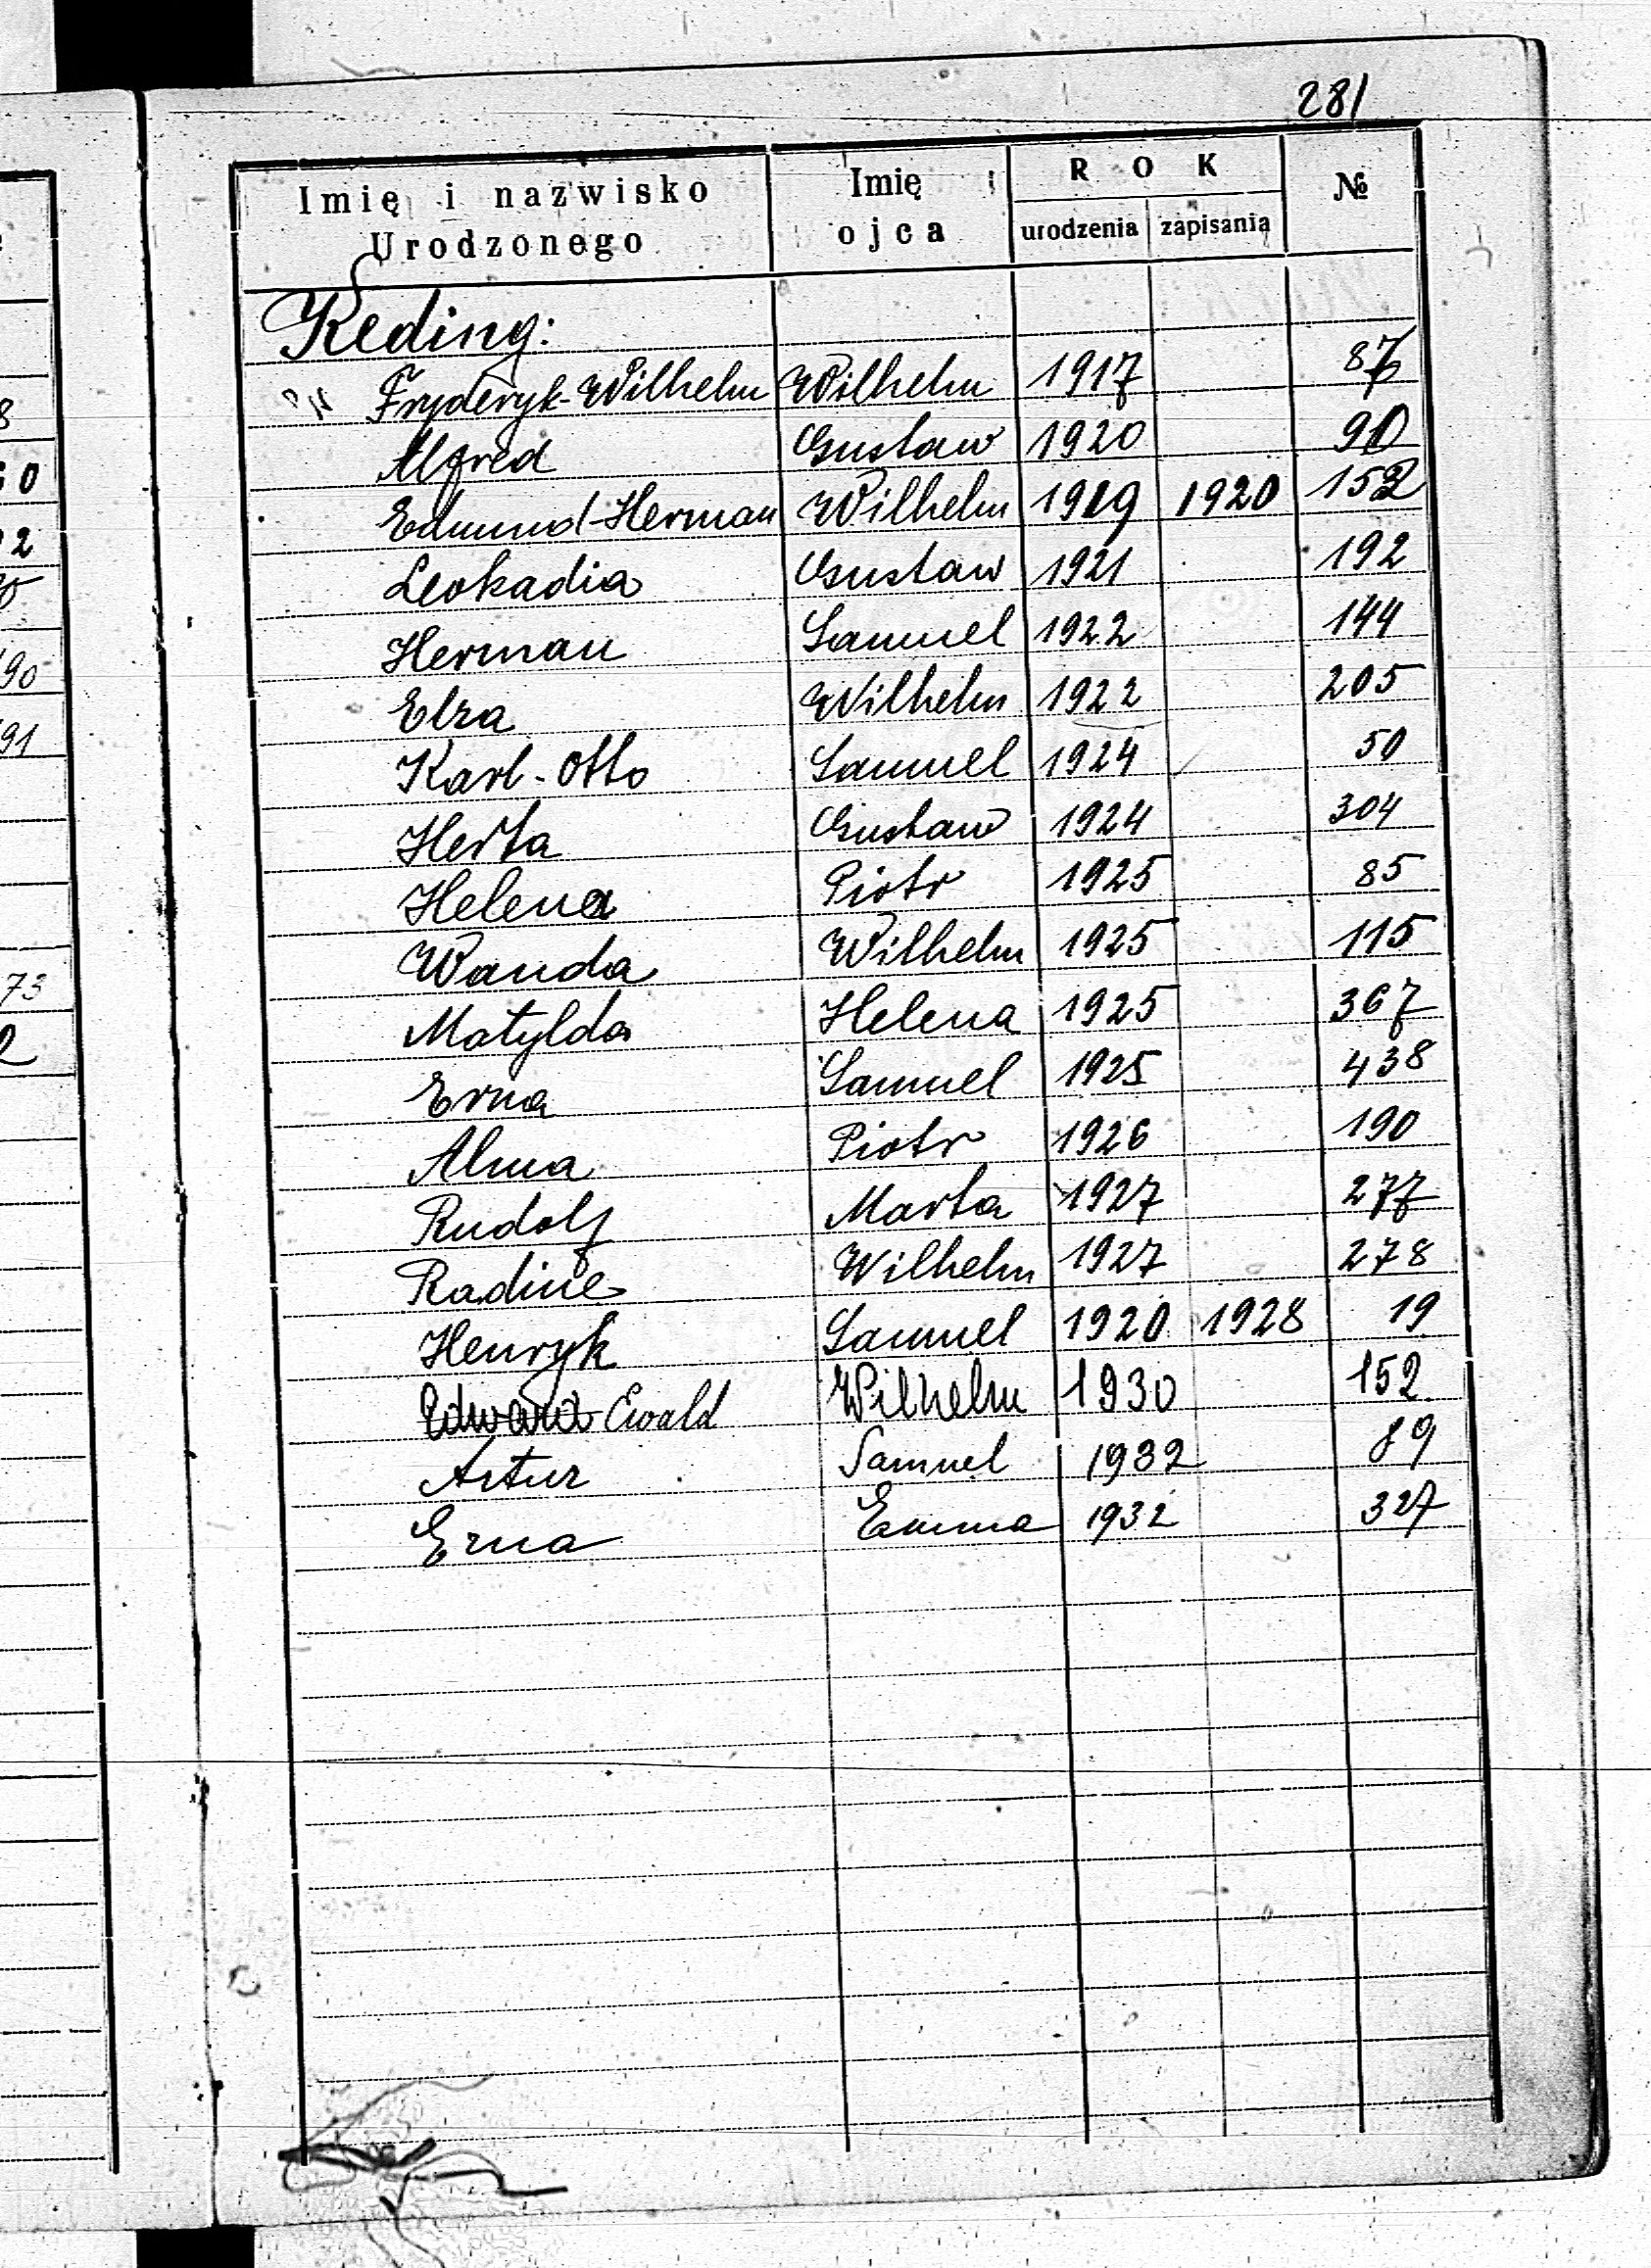 281
Imię i nazwisko Urodzonego Imię ojca ROK urodzenia zapisania №
Reding:
Fryderyk-Wilhelm Wilhelm 1917
Alfred Gustaw 1920 90
Edmund-Herman Wilhelm 1919 1920 152
Leokadia Gustaw 1921 192
Herman Samuel 1922 144
Elza Wilhelm 1922 205
Karl-Otto Samuel 1924 50
Herta Gustaw 1924 304
Helena Piotr 1925 85
Wanda Wilhelm 1925 115
Matylda Helena 1925 367
Erna Samuel 1925 438
Alma Piotr 1926 190
Rudolf Marta 1927 277
Radine Wilhelm 1927 278
Henryk Samuel 1920 1928 19
Edward Ewald Wilhelm 1930 152
Artur Samuel 1932 89
Erna Emma 1932 327
8
2
90
91
73
2